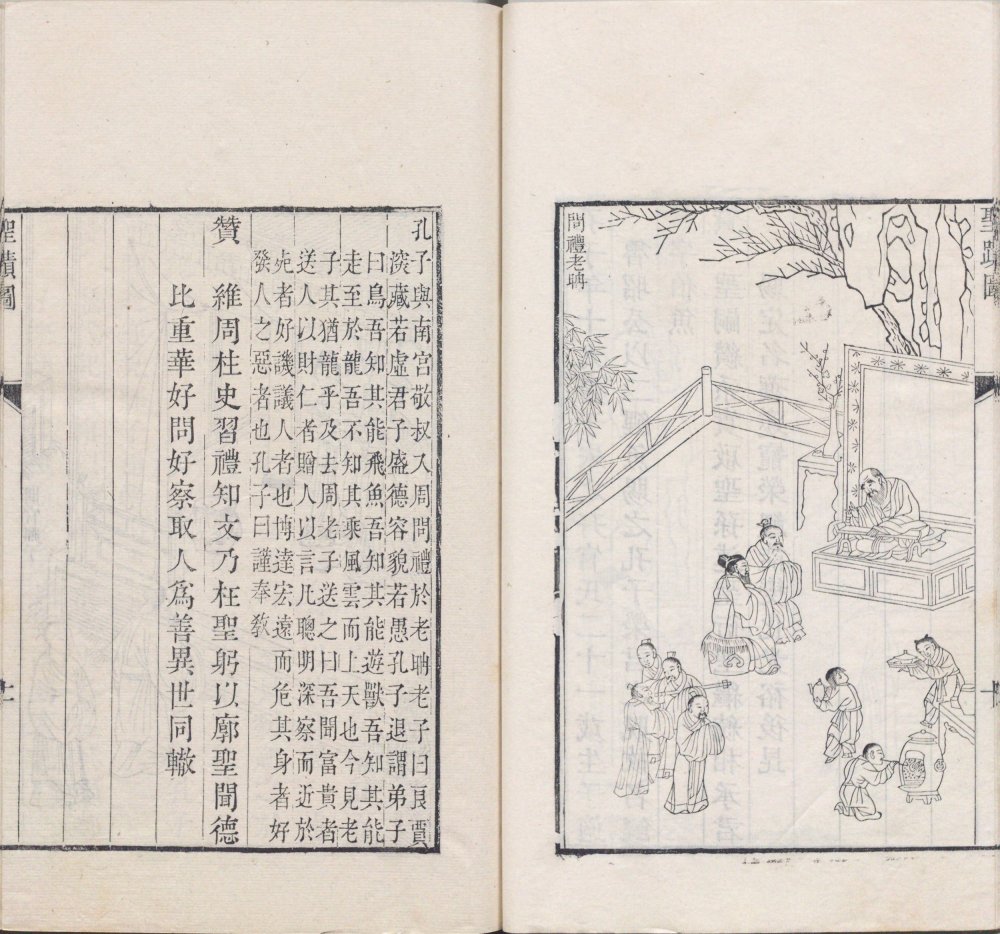 聖蹟圖
問禮老聃
孔子與南宮敬叔入周問禮於老聃老子曰良賈
深藏若虛君子盛德容貌若愚孔子退謂弟子
曰鳥吾知其能飛魚吾知其能遊獸吾知其能
走至於龍吾不知其乘風雲而上天也今見老
子其猶龍乎及去周老子送之曰吾聞富貴者
送人以財仁者贈人以言凡聰明深察而近於
死者好譏議人者也博達宏遠而危其身者好
發人之惡者也孔子曰謹奉敎
贊　維周柱史習禮知文乃枉聖躬以廓聖聞德
比重華好問好察取人爲善異世同轍
聖蹟圖